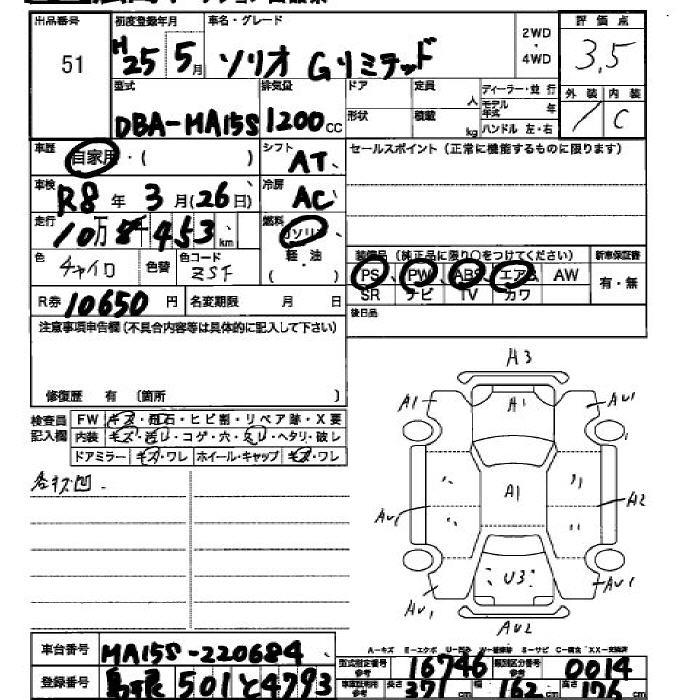 出品番号 初度登録年月 車名・グレード 2WD・4WD 評価点
51 H25年5月 ソリオ Gリミテッド 3.5
型式 排気量 ドア 定員 人 ディーラー・並行 外装 内装
DBA-HA15S 1200cc 形状 積載 kg モデル年式 年 ハンドル 左・右 / C
車歴 自家用・( ) シフト AT セールスポイント (正常に機能するものに限ります)
車検 R8年3月(26日) 冷房 AC
走行 10万8千453km 燃料 ガソリン 軽・油 ( )
装備品 (純正品に限り○をつけてください) 新車保証書
色 チャイロ 色替 色コード ZSF PS、PW、ABS、エアB、AW 有・無
SR ナビ TV カワ
R券 10650円 名変期限 月 日 後日品
注意事項申告欄 (不具合内容等は具体的に記入して下さい)
修復歴 有 〔箇所 〕
検査員記入欄 FW キズ・飛石・ヒビ割・リペア跡・X要
内装 キズ・汚レ・コゲ・穴・スレ・ヘタリ・破レ
ドアミラー キズ・ワレ ホイール・キャップ キズ・ワレ
各キズ凹.
A3
A1 A1 AU1
AU1 A1 A2
AU1 U3 AU1
AU2
A-キズ E-エクボ U-凹み W-補修跡 S-サビ C-腐食 XX-交換済
車台番号 HA15S-220684 型式指定番号 参考 16746 類別区分番号 参考 0014
登録番号 島根 501 と 4793 車検証利用 参考 長さ 371cm 幅 162cm 高さ 176cm